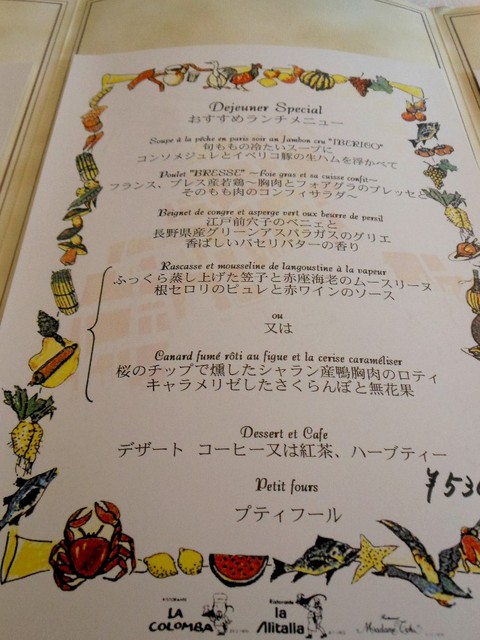 Dejeuner Special
おすすめランチメニュー
Soupe à la pêche en paris soie au Jambon cru "IBERICO"
旬ももの冷たいスープに
コンソメジュレとイベリコ豚の生ハムを浮かべて
Poulet "BRESSE" ～foie gras et sa cuisse confit～
フランス、ブレス産若鶏～胸肉とフォアグラのプレッセと
そのもも肉のコンフィサラダ～
Beignet de congre et asperge vert aux beurre de persil
江戸前穴子のベニエと
長野県産グリーンアスパラガスのグリエ
香ばしいパセリバターの香り
Rascasse et mousseline de langoustine à la vapeur
ふっくら蒸し上げた笠子と赤座海老のムースリーヌ
根セロリのピュレと赤ワインのソース
ou
又は
Canard fumé rôti au figue et la cerise caraméliser
桜のチップで燻したシャラン産鴨胸肉のロティ
キャラメリゼしたさくらんぼと無花果
Dessert et Cafe
デザート コーヒー又は紅茶、ハーブティー
Petit fours
¥53
プティフール
LA
COLOMBA
Ristorante
la
Alitalia